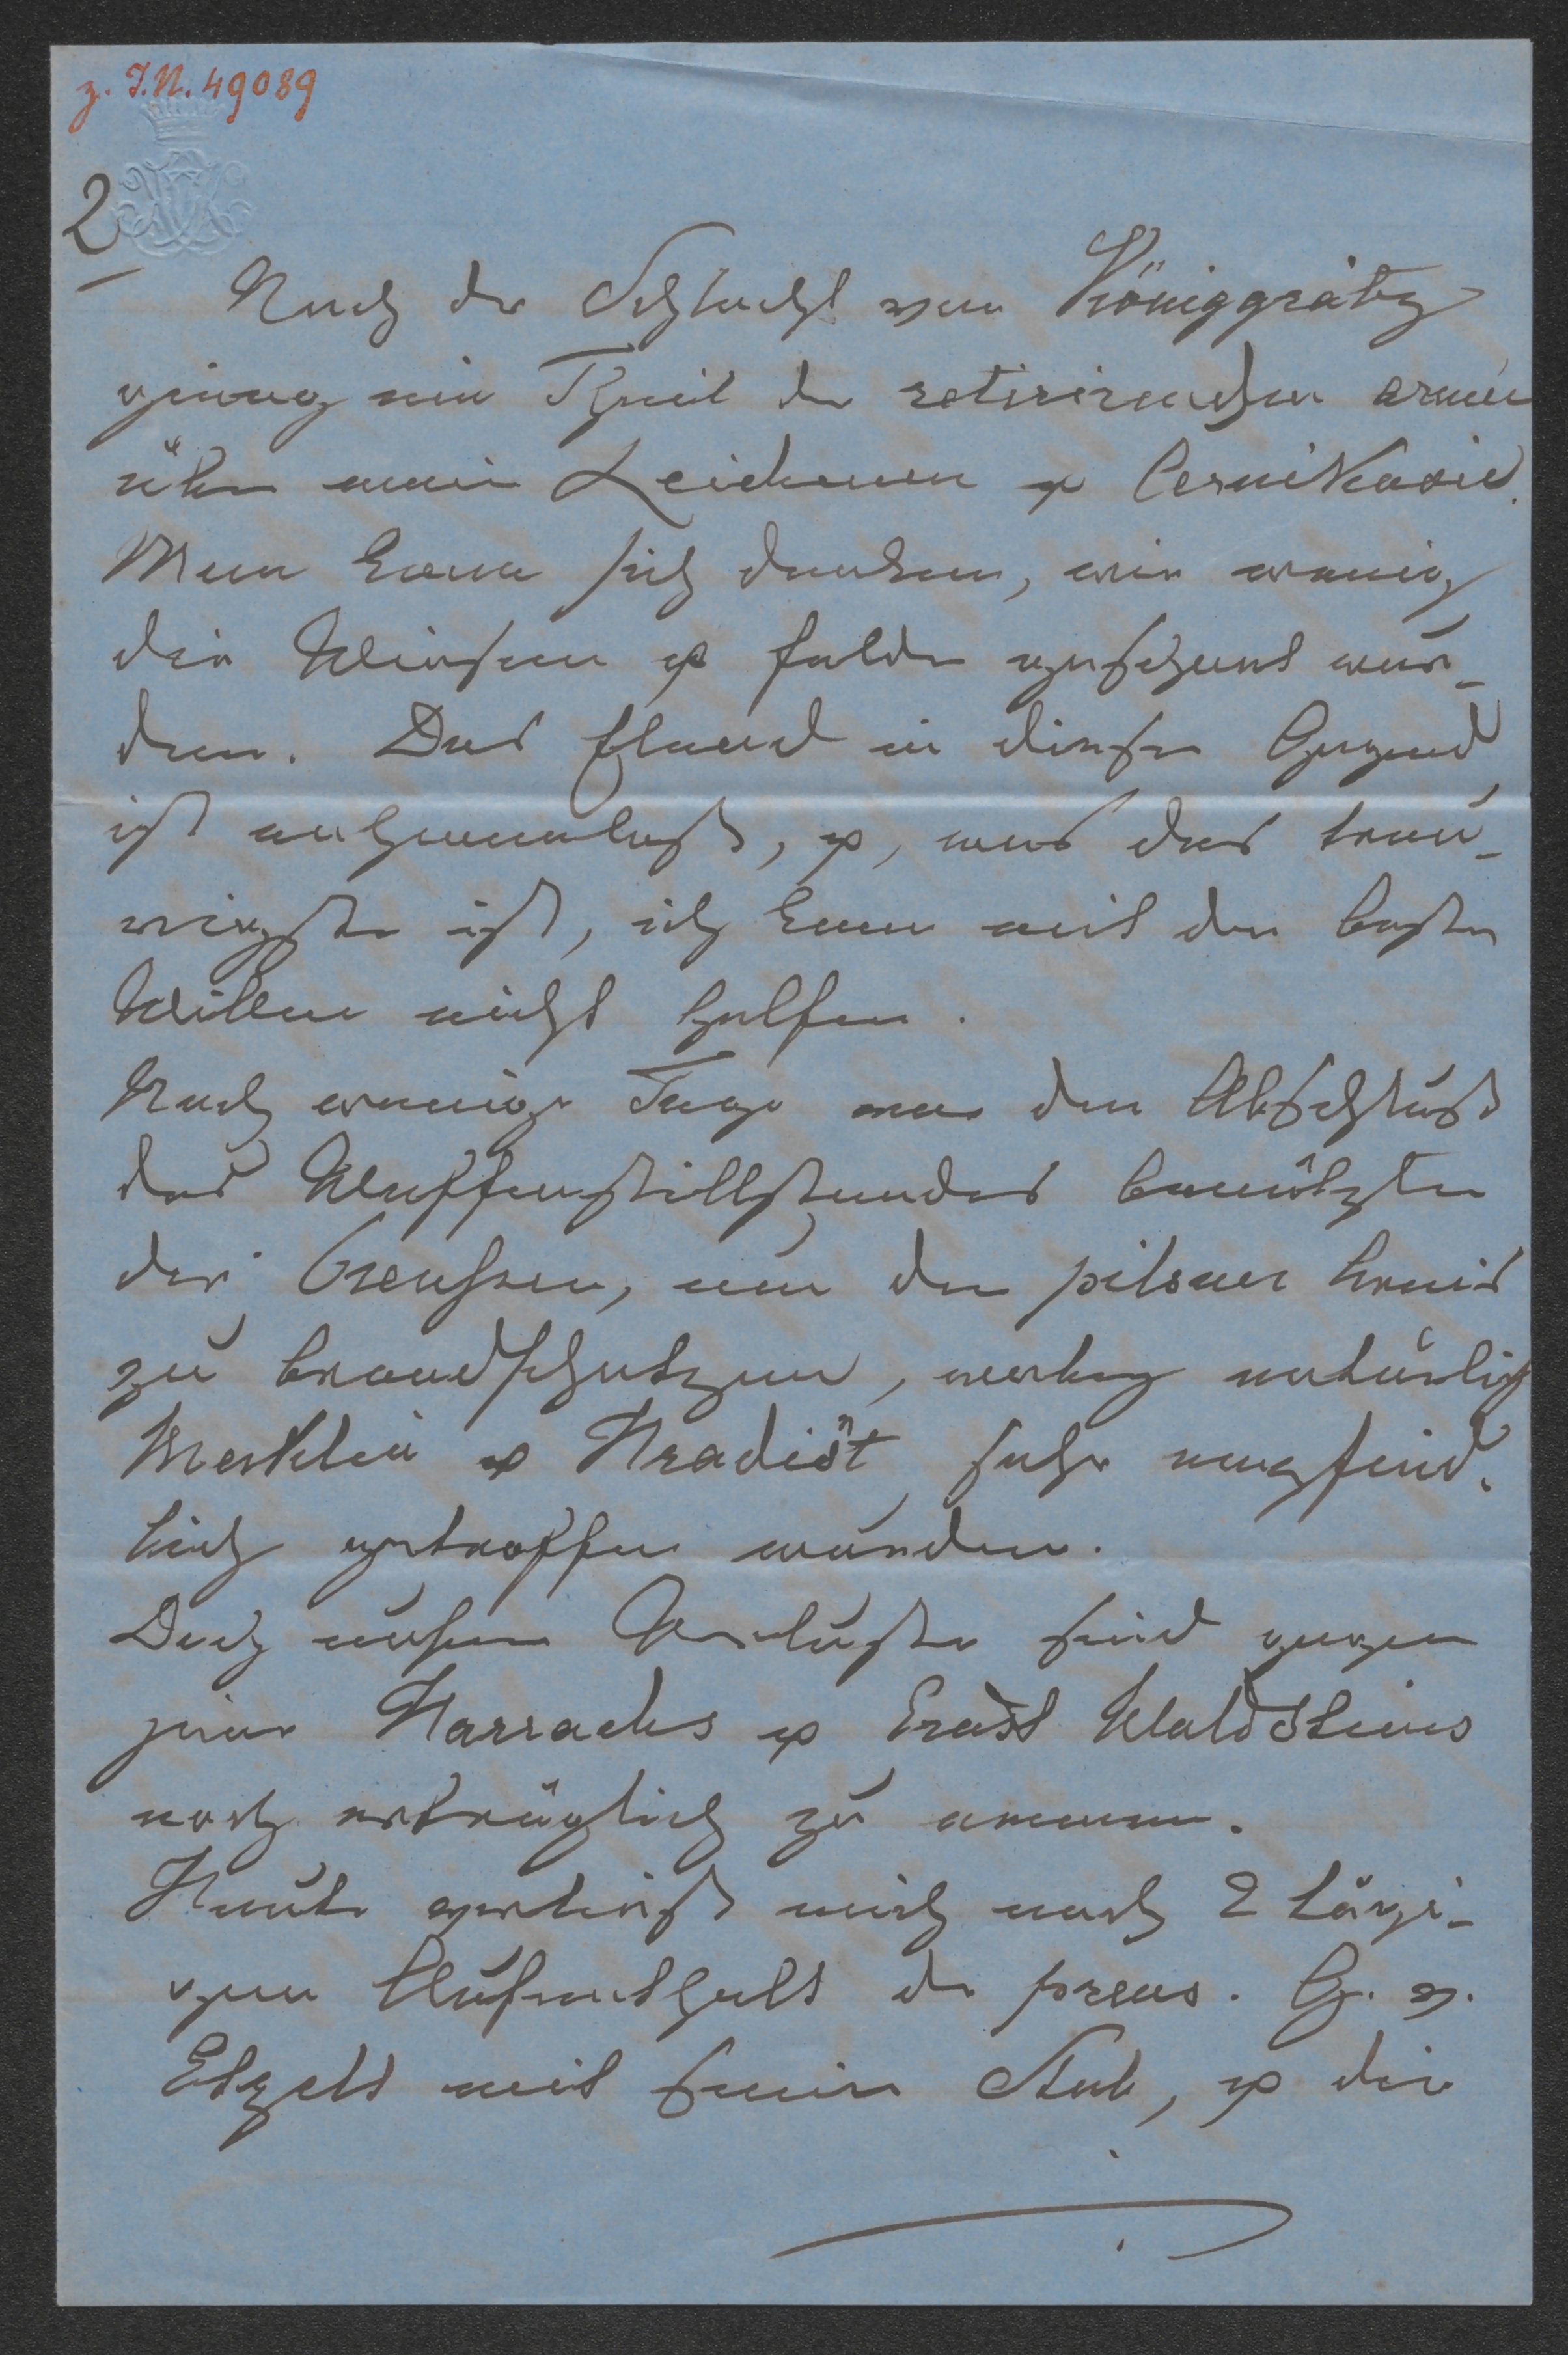 z. I.N. 49089
2
Nach der Schlacht von Königgrätz
gieng ein Theil der retirirenden armée
über mein Leickowa & Cernikovic.
Man kann sich denken, wie wenig
die Wiesen & felder geschont wur-
den. Das Elend in dieser Gegend
ist nahmenlos, &, was das trau-
rigste ist, ich kann mit den besten
Willen nicht helfen.
Nach wenige Tage vor den Abschluß
des Waffenstillstandes benützten
die Preussen, um den pilsner kreis
zu brandschatzen, wobey natürlich
Merklin & Hradist sehr empfind-
lich getroffen wurden.
Doch unsere Verluste sind gegen
jene Harrachs & Ernst Waldsteins
noch erträglich zu nennen.
Heute verließ mich nach 2 tägi-
gen Aufenthalt der preus. G. v.
Etzels mit seinen Stab, & die